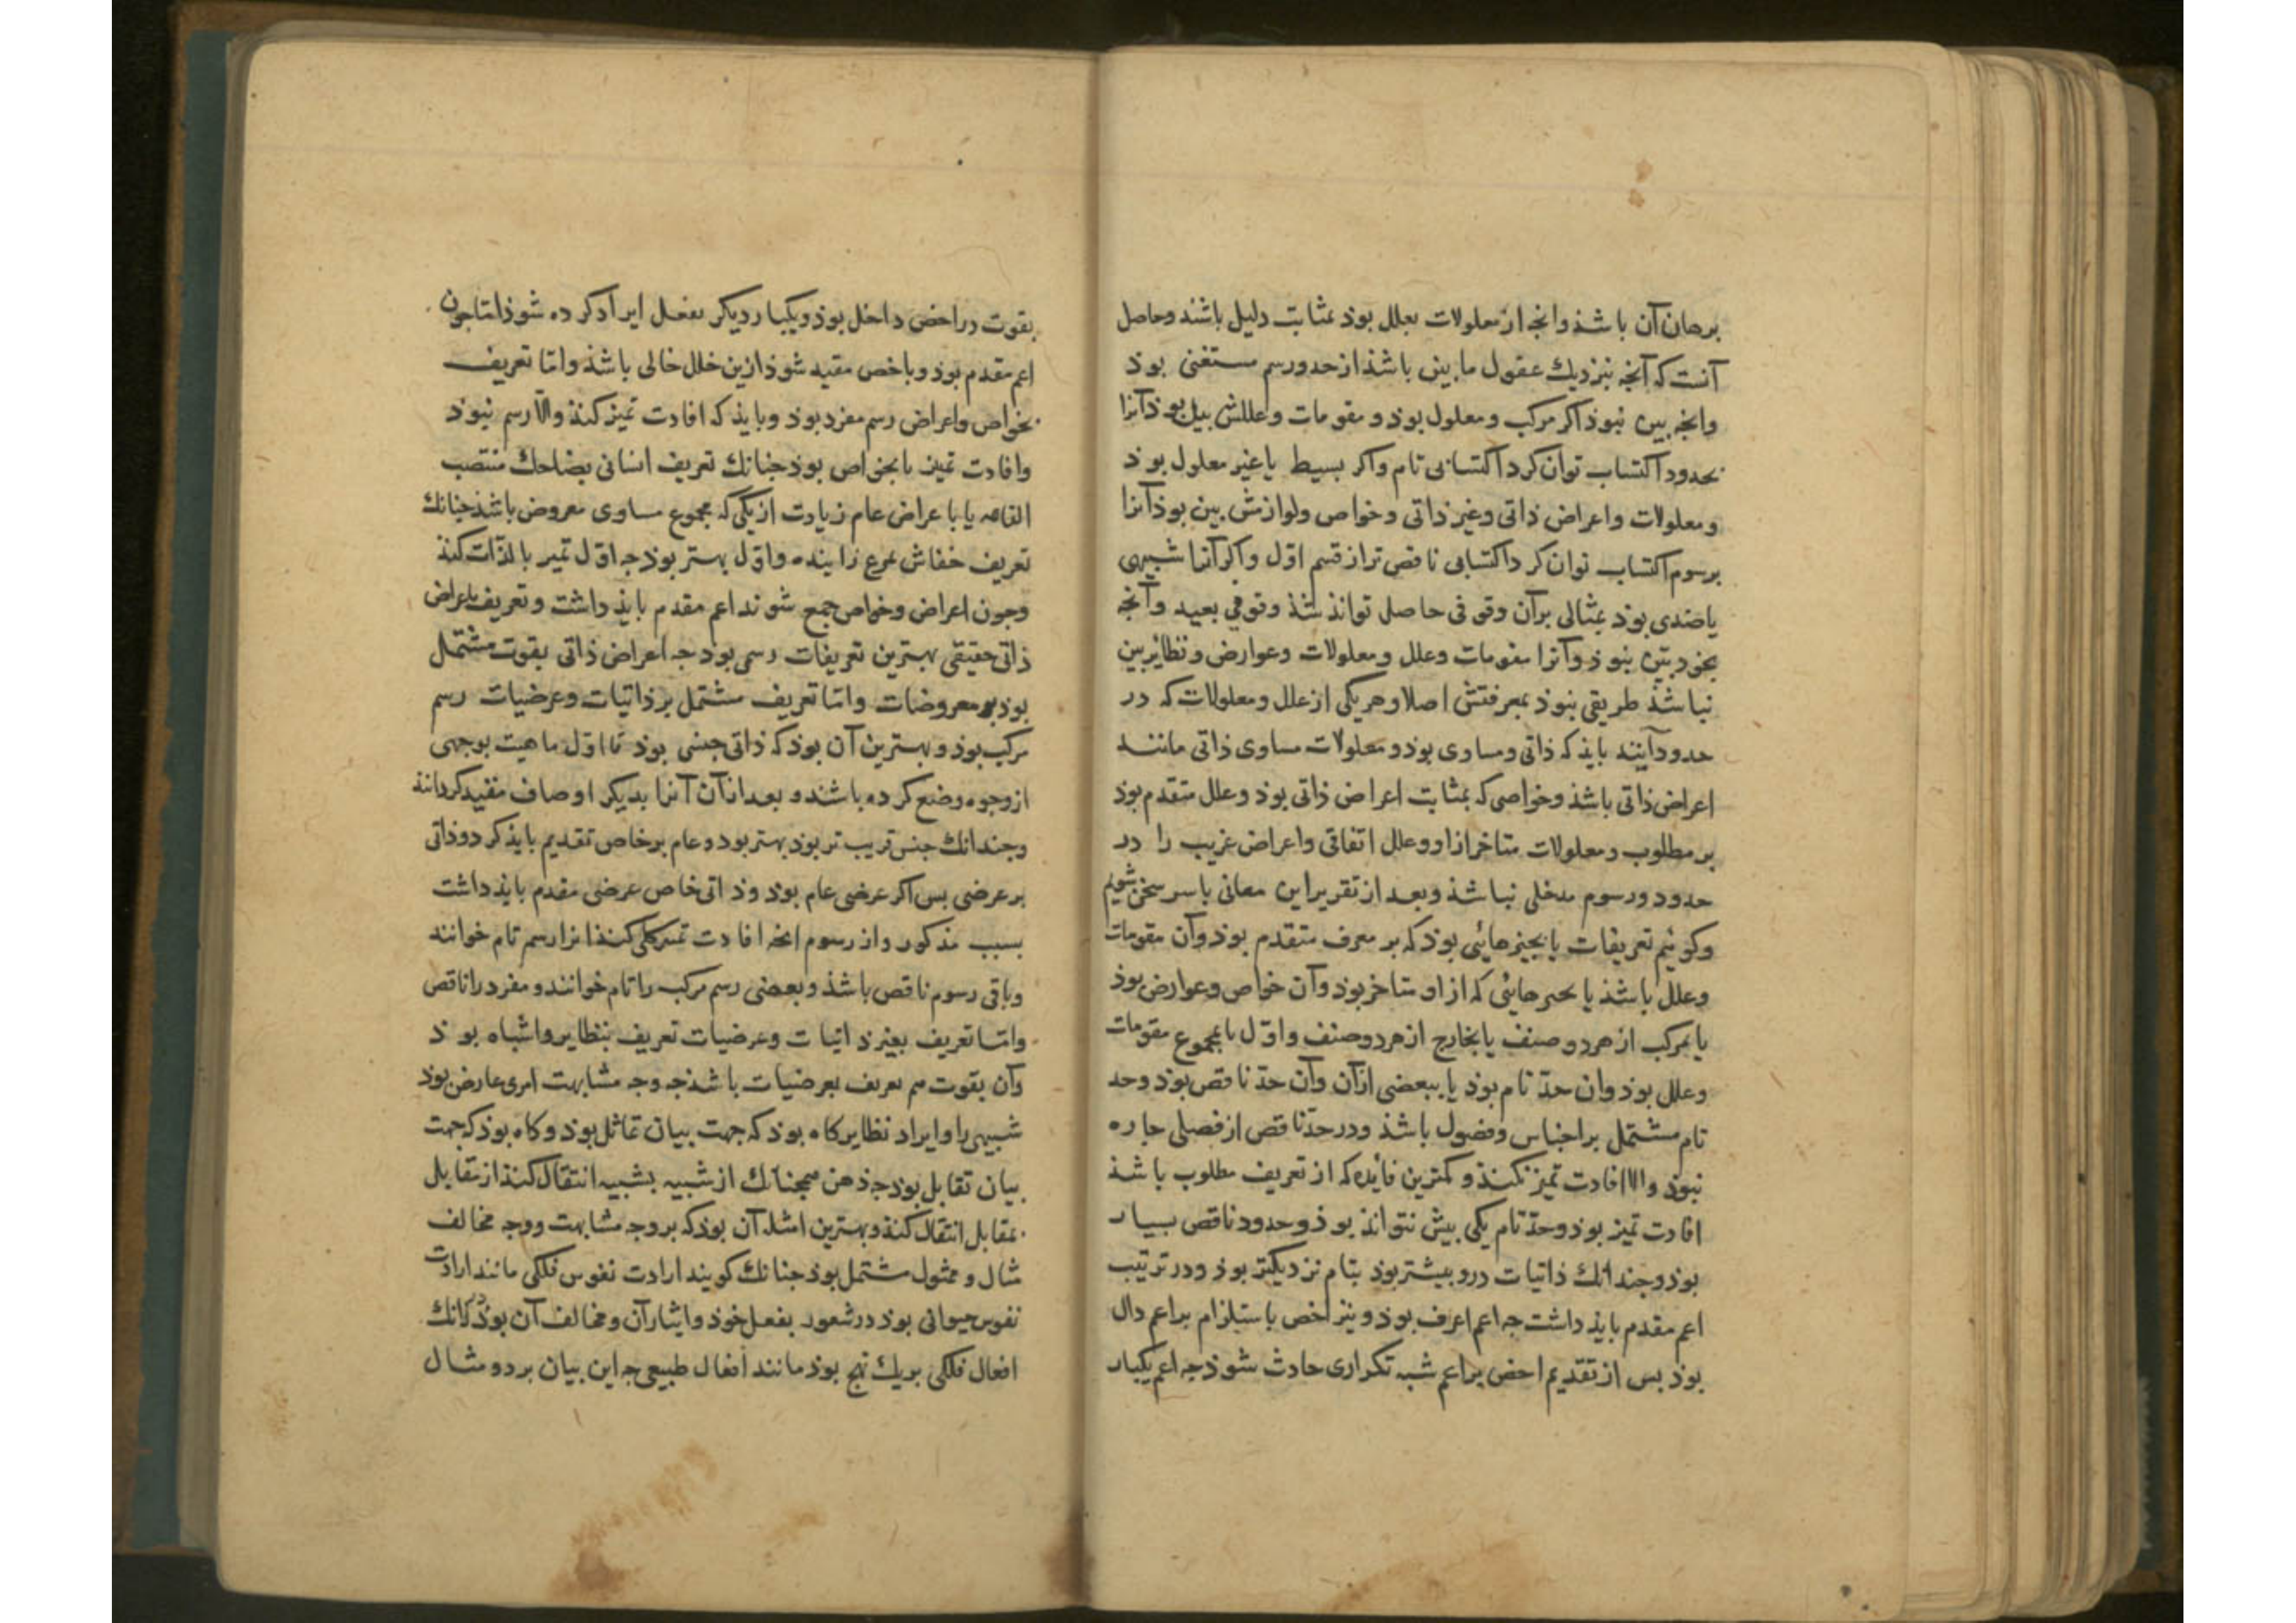 برهان آن باشذ وانجه از معلولات بعلل بوذ بمثابت دلیل باشند وحاصل
آنست که آنجه بنزدیك عقول ما بین باشذ از حد ورسم مستغنی بوذ
وانجه بین نبوذ اکر مرکب ومعلول بوذ و مقومات وعللش بین بوذ آنرا
بحدود اکتساب توان کرد اکتسابی تام واکر بسیط یا غیر معلول بوذ
ومعلولات واعراض ذاتی وغیر ذاتی وخواص ولوازمش بین بوذ آنرا
برسوم اکتساب توان کرد اکتسابی ناقص تر از قسم اوّل واکر آنرا شبیهی
یا ضدی بوذ بمثالی بر آن وقوفی حاصل تواند شذ وقوفی بعید وآنجه
بخود بیّن نبوذ وآنرا مقومات وعلل ومعلولات وعوارض ونظایر بین
نباشذ طریقی نبوذ بمعرفتش اصلا وهر یکی از علل ومعلولات که در
حدود آیند بایذ که ذاتی ومساوی بوذ ومعلولات مساوی ذاتی مانند
اعراض ذاتی باشذ وخواصی که بمثابت اعراض ذاتی بوذ وعلل متقدم بوذ
بر مطلوب ومعلولات متاخر ازاو وعلل اتفاقی واعراض غریب را در
حدود ورسوم مدخلی نباشذ وبعد از تقریر این معانی با سر سخن شویم
وکوئیم تعریفات یا بجیزهائی بوذ که بر معرف متقدم بوذ وآن مقومات
وعلل باشذ یا بجیزهائی که از او متاخر بوذ وآن خواص وعوارض بوذ
یا بمرکب از هر دو صنف یا بخارج از هر دو صنف واوّل یا بمجموع مقومات
وعلل بوذ وان حدّ تام بوذ یا ببعضی ازآن وآن حدّ ناقص بوذ وحد
تام مشتمل بر اجناس وفصول باشذ ودر حدّ ناقص از فصلی جاره
نبوذ والا افادت تمیز نکند و کمترین فایده که از تعریف مطلوب باشذ
افادت تمیز بوذ وحدّ تام یکی بیش نتواند بوذ وحدود ناقص بسیار
بوذ وجندانك ذاتیات درو بیشتر بوذ بتام نزدیکتر بوذ ودر ترتیب
اعم مقدم بایذ داشت جه اعم اعرف بوذ و نیز اخص باستلزام بر اعم دال
بوذ بس از تقدیم اخص بر اعم شبه تکراری حادث شوذ جه اعم یکبار
بقوت در اخص داخل بوذ ویکبار دیکر بفعل ایراد کرده شوذ امّا جون
اعم مقدم بوذ وباخص مقید شوذ ازین خلل خالی باشذ وامّا تعریف
بخواص واعراض رسم مفرد بوذ وبایذ که افادت تمیز کنذ والّا رسم نبوذ
وافادت تمیز یا بخواص بوذ جنانك تعریف انسانی بضاحك منتصب
القامه یا باعراض عام زیادت از یکی که مجموع مساوی معروض باشذ جنانك
تعریف خفاش بمرغ زاینده واوّل بهتر بوذ جه اوّل تمیز بالذّات کند
وجون اعراض وخواص جمع شوند اعم مقدم بایذ داشت وتعریف باعراض
ذاتی حقیقی بهترین تعریفات رسمی بود جه اعراض ذاتی بقوت مشتمل
بوذ بر معروضات وامّا تعریف مشتمل بر ذاتیات وعرضیات رسم
مرکب بوذ و بهترین آن بوذ که ذاتی جنسی بوذ تا اوّل ماهیت بوجهی
از وجوه وضع کرده باشند و بعد ازآن آنرا بدیکر اوصاف مقید کردانند
وجندانك جنس قریب تر بوذ بهتر بود و عام بر خاص تقدیم بایذ کرد وذاتی
بر عرضی بس اکر عرضی عام بوذ وذاتی خاص عرضی مقدم بایذ داشت
بسبب مذکور واز رسوم انجه افادت تمیز کلی کنذ انرا رسم تام خوانند
وباقی رسوم ناقص باشذ وبعضی رسم مرکب را تام خوانند ومفرد را ناقص
وامّا تعریف بغیر ذاتیات وعرضیات تعریف بنظایر واشباه بوذ
وآن بقوت هم تعریف بعرضیات باشذ جه وجه مشابهت امری عارض بوذ
شبیهی را وایراد نظایر کاه بوذ که جهت بیان تماثل بوذ وکاه بوذ که جهت
بیان تقابل بوذ جه ذهن همجنانك از شبیه بشبیه انتقال کنذ از مقابل
بمقابل انتقال کنذ وبهترین امثله آن بوذ که بر وجه مشابهت ووجه مخالف
مثال و ممثول مشتمل بوذ جنانك کویند ارادت نفوس فلکی مانند ارادت
نفوس حیوانی بوذ در شعور بفعل خوذ وایثار آن ومخالف آن بوذ درانك
افعال فلکی بریك نهج بوذ مانند افعال طبیعی جه این بیان بر دو مثال